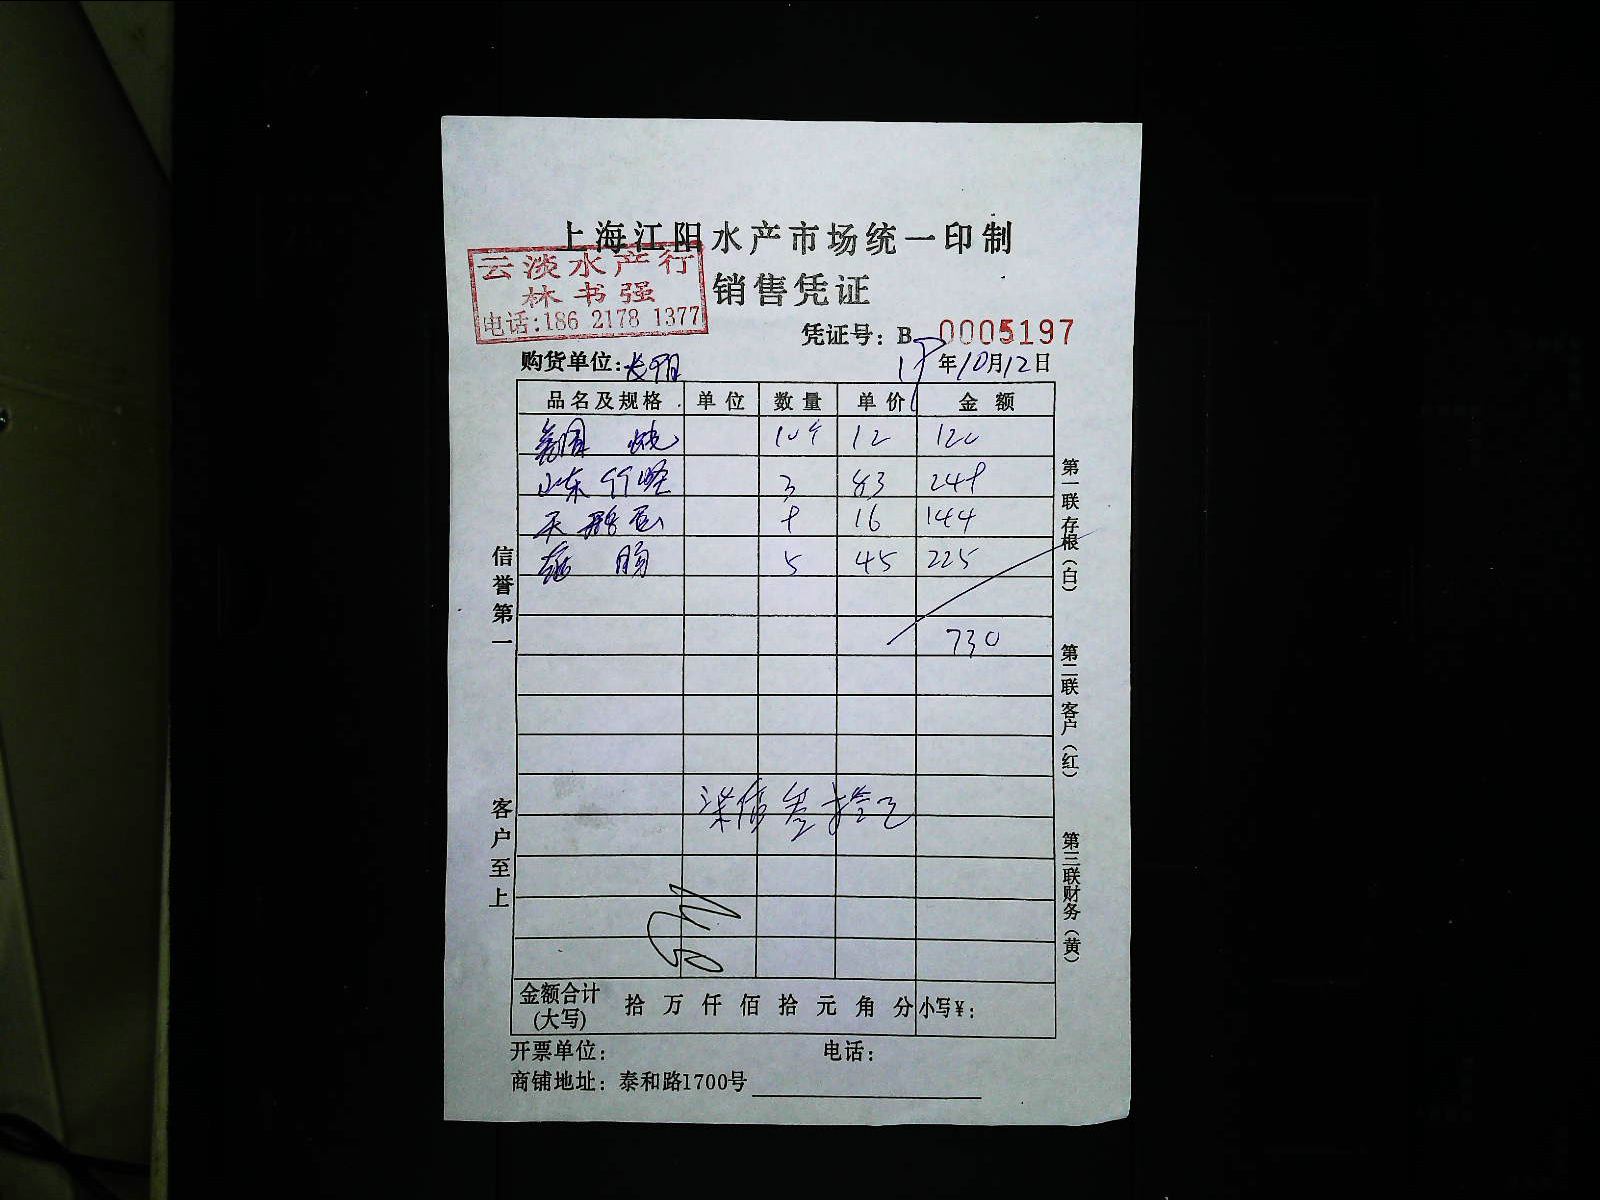 上海江阳水产市场统一印制
云淡水产行
林书强
电话:186 2178 1377
销售凭证
凭证号: B 0005197
购货单位:
年10月12日
品名及规格 单位 数量 单价 金额
10个 12 120
山东 3 83 249
天鹅蛋 9 16 144
肠 5 45 225
730
柒佰叁拾元
金额合计 拾 万 仟 佰 拾 元 角 分 小写¥:
(大写)
开票单位: 电话:
商铺地址: 泰和路1700号
信誉第一
客户至上
第一联 存根(白)
第二联 客户(红)
第三联 财务(黄)